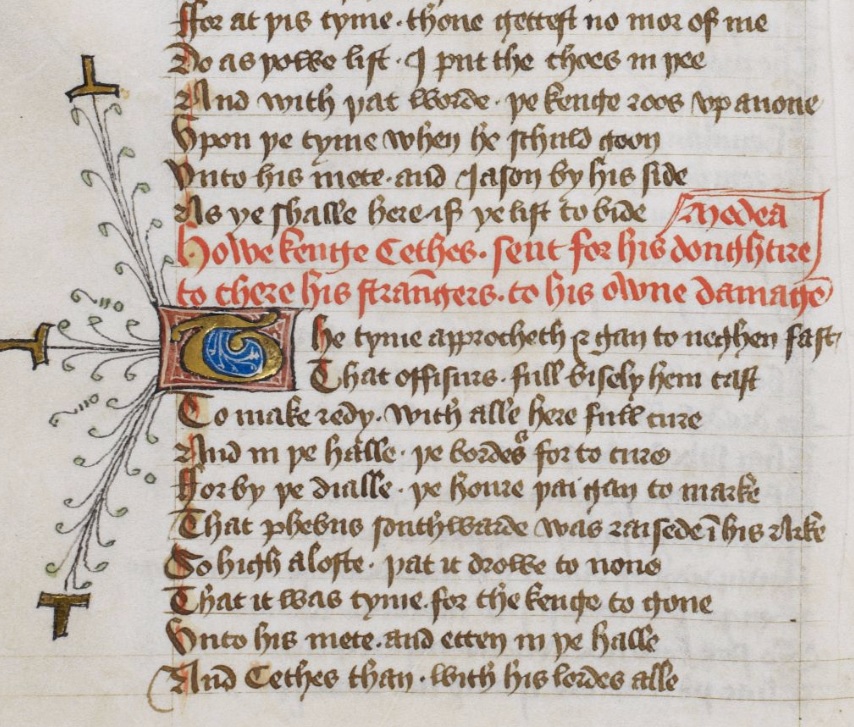 ffor at þis tyme · thone gettest no mor of me
Do as yowe list · I put the choes in þee
And with þat worde · þe kenge roos vp anone
Vpon þe tyme when he schuld goon
Vnto his mete · and Iason by his side
As ye shalle here · if ye list to bide
Medea
howe kenge Cethes · sent for his doughtire
to chere his strangers · to his owne damage
The tyme approcheth & gan to neghen fast
That offisurs · full bisely hem cast
To make redy · with alle here full cure
And in þe halle · þe bordes for to cure
ffor by þe dialle · þe houre þai gan to marke
That phebus southwarde was raisede ī his Arke
So high alofte · þat it drowe to none
That it was tyme · for the kenge to gone
Vnto his mete · and etten in þe halle
And Cethes than · with his lordes alle